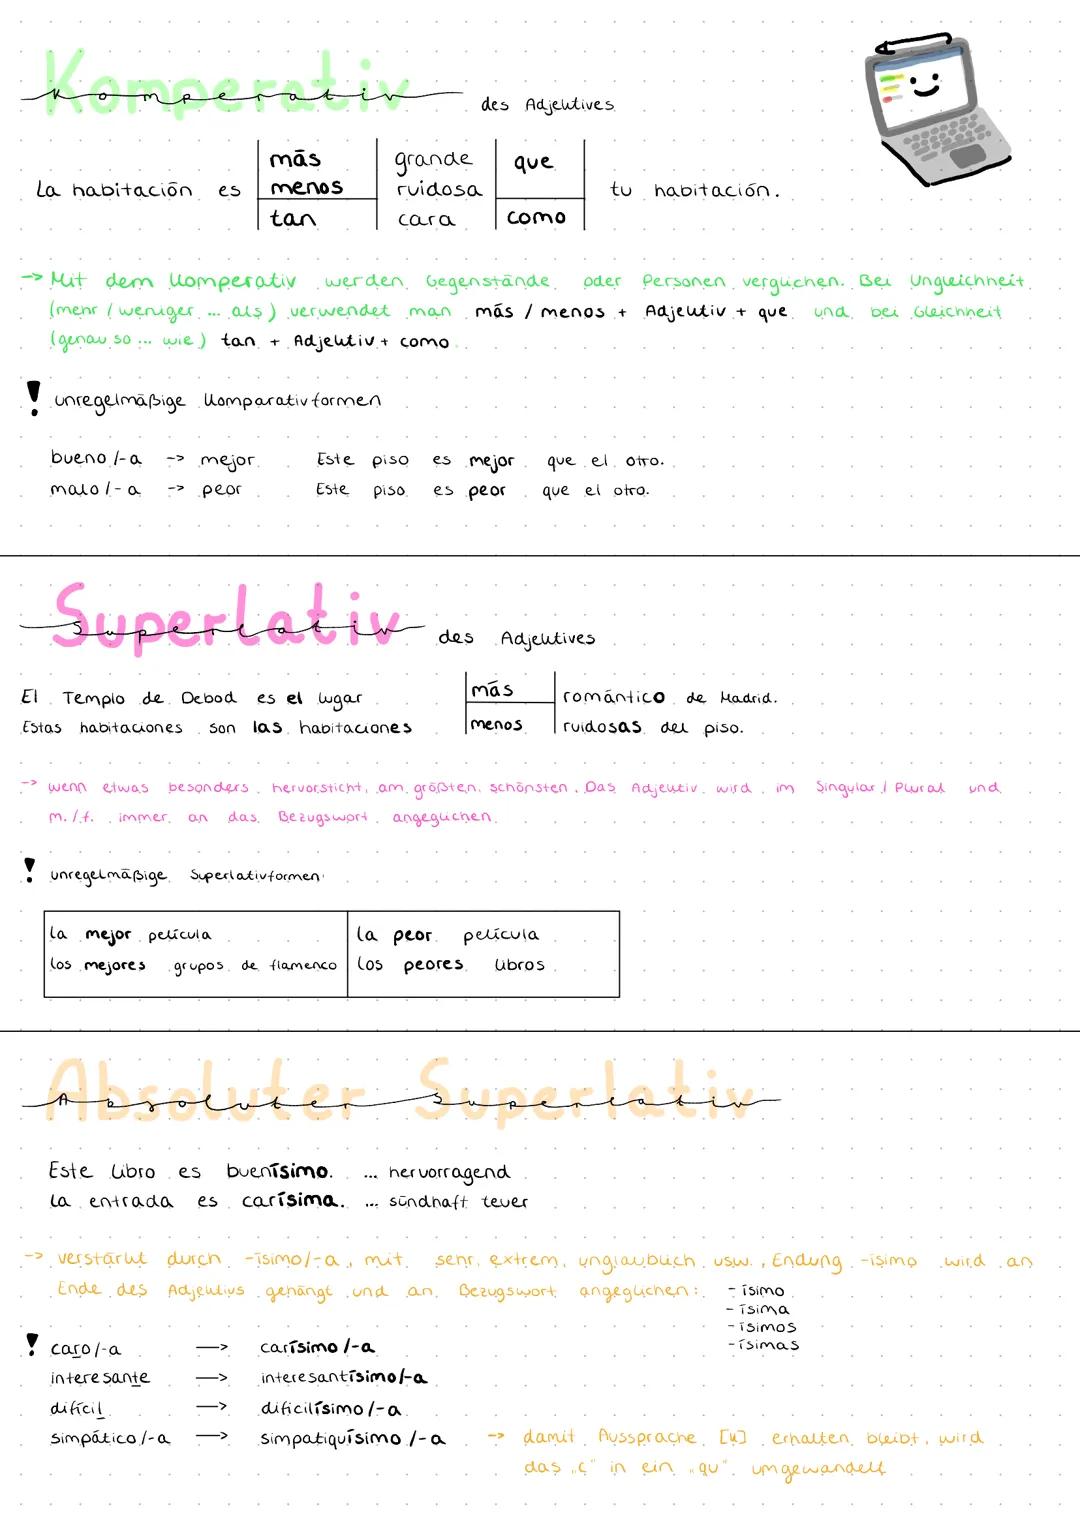 Komperativ des Adjektives
más grande que
La habitación es menos ruidosa tu habitación.
tan cara como
-> Mit dem Komperativ werden Gegenstände oder Personen verglichen. Bei Ungleichheit
(mehr / weniger ... als) verwendet man más / menos + Adjektiv + que und bei Gleichheit
(genau so ... wie) tan + Adjektiv + como
! unregelmäßige Komparativformen
bueno /-a -> mejor Este piso es mejor que el otro.
malo /-a -> peor Este piso es peor que el otro.
Superlativ des Adjektives
El Templo de Debod es el lugar más romántico de Madrid.
Estas habitaciones son las habitaciones menos ruidosas del piso.
-> wenn etwas besonders hervorsticht, am größten, schönsten. Das Adjektiv wird im Singular / Plural und
m. /f. immer an das Bezugswort angeglichen.
! unregelmäßige Superlativformen:
la mejor película la peor película
los mejores grupos de flamenco los peores libros
Absoluter Superlativ
Este libro es buenísimo. ... hervorragend
La entrada es carísima. ... sündhaft teuer
-> verstärkt durch -ísimo/-a, mit sehr, extrem, unglaublich usw., Endung -ísimo wird an
Ende des Adjektivs gehängt und an Bezugswort angeglichen: -ísimo
-ísima
-ísimos
-ísimas
! caro/-a -> carísimo /-a
interesante -> interesantísimo/-a
difícil -> dificilísimo /-a
simpático /-a -> simpatiquísimo /-a -> damit Aussprache [k] erhalten bleibt, wird
das „c" in ein „qu" umgewandelt